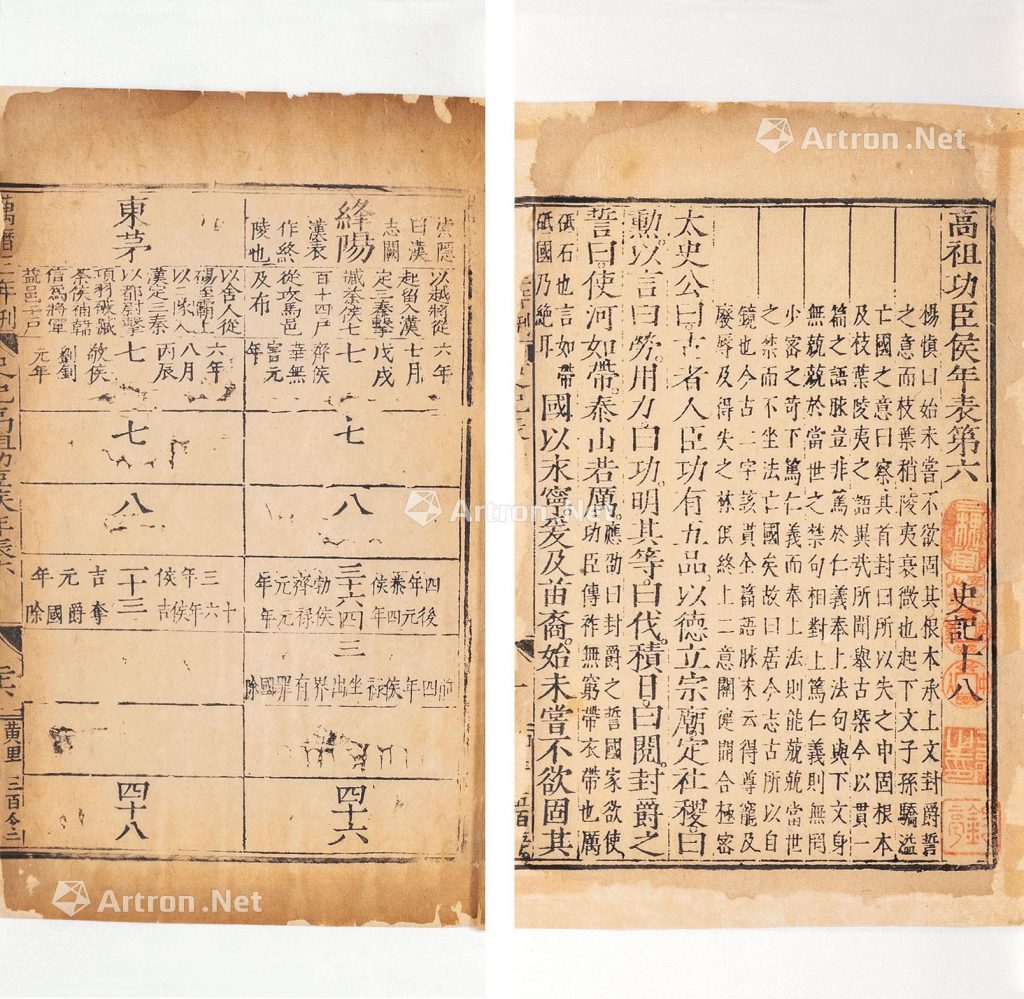 Artron.Net
高祖功臣侯年表第六
史記十八
楊慎曰始未嘗不欲固其根本承上文封爵誓
之意而枝葉稍陵夷衰微也起下文子孫驕溢
亡國之意曰察其首封曰所以失之申固根本
及枝葉陵夷之語異哉所聞舉古槩今以貫一
篇之語脉豈非篤於仁義奉上法句與下文身
無兢兢於當世之禁句相對上篤仁義則無罔
少密之苛下篤仁義而奉上法則能兢兢當世
之禁而不坐法亡國矣故曰居今志古所以自
鏡也今古二字該貫全篇語脉末云得尊寵及
廢辱及得失之林俱終上二意關徤開合極密
太史公曰古者人臣功有五品以德立宗廟定社稷曰
勳以言曰勞用力曰功明其等曰伐積日曰閱封爵之
誓曰使河如帶泰山若厲應劭曰封爵之誓國家欲使
功臣傳祚無窮帶衣帶也厲
砥石也言如帶
砥國乃絶耳國以永寧爰及苗裔始未嘗不欲固其
Artron.Net
絳陽
索隱
曰漢
志闕
漢表
作終
陵也
以越將從
起留入漢
定三秦擊
臧荼侯七
百四十戶
從攻馬邑
及布
六年
七月
戊戌
七
齊侯
華無
害元
年
七
八
三十六四
四年恭侯勃齊元年
後元四年侯祿元年
三
前四年侯祿坐出界有罪國除
四十六
東茅
以舍人從
碭至霸上
以二隊入
漢定三秦
以都尉擊
項羽破臧
荼侯捕韓
信為將軍
益邑千戶
六年
八月
丙辰
七
敬侯
劉釗
元年
七
八
二十三
三年侯吉元年
十六年侯吉奪爵國除
四十八
萬曆二年刊
史記高祖功臣侯年表六
黄里
三百令二
Artron.Net